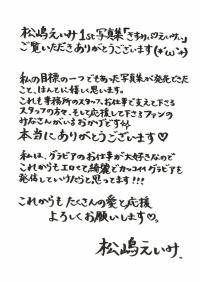 松嶋えいみ1st写真集「きすみぃ◎えいみぃ」
ご覧いただきありがとうございます(*'ω'*)
私の目標の一つでもあった写真集が発売できた
こと、ほんとに嬉しく思います。
これも事務所のスタッフ、お仕事で支えて下さる
スタッフの方々、そして応援して下さるファンの
みなさんがいるおかげです
本当にありがとうございます♡
私は、グラビアのお仕事が大好きなので
これからもエロくて綺麗でカッコイイグラビアを
発信していけたらと思ってます!!!
これからもたくさんの愛と応援
よろしくお願いします♡。
松嶋えいみ、